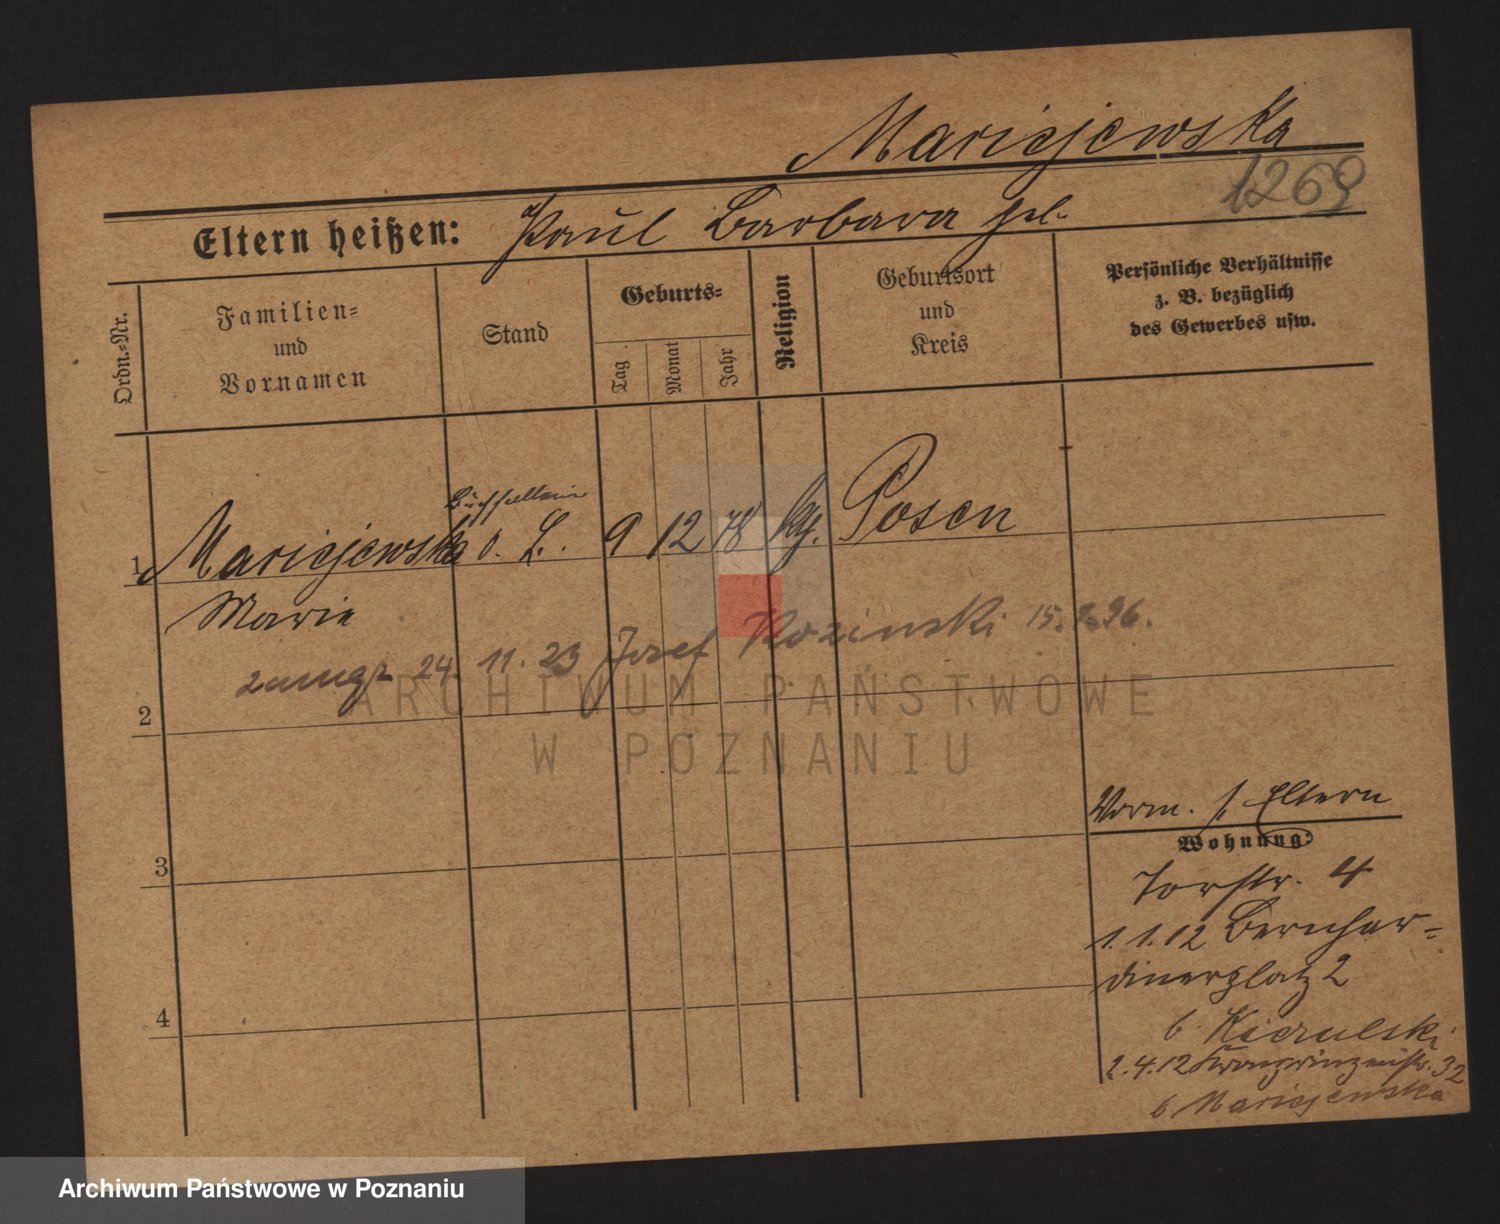 Maricjewska
1269
Eltern heißen: Paul Barbara gel.
Ordn.-Nr.
Familien-
und
Vornamen
Stand
Geburts-
Tag
Monat
Jahr
Religion
Geburtsort
und
Kreis
Persönliche Verhältnisse
z. B. bezüglich
des Gewerbes usw.
Buchhalterin
1 Maricjewska o. L. 9 12 78 kg. Posen
Marie
zamęż 24. 11. 23 Josef Kozinski 15. 2. 96.
2
ARCHIWUM PAŃSTWOWE
W POZNANIU
Vorm. s. Eltern
Wohnung:
3
Torstr. 4
1. 1. 12 Bernhar-
dinerplatz 2
4
b. Kierulski
1. 4. 12 Kronprinzenstr. 32
b Maricjewska
Archiwum Państwowe w Poznaniu